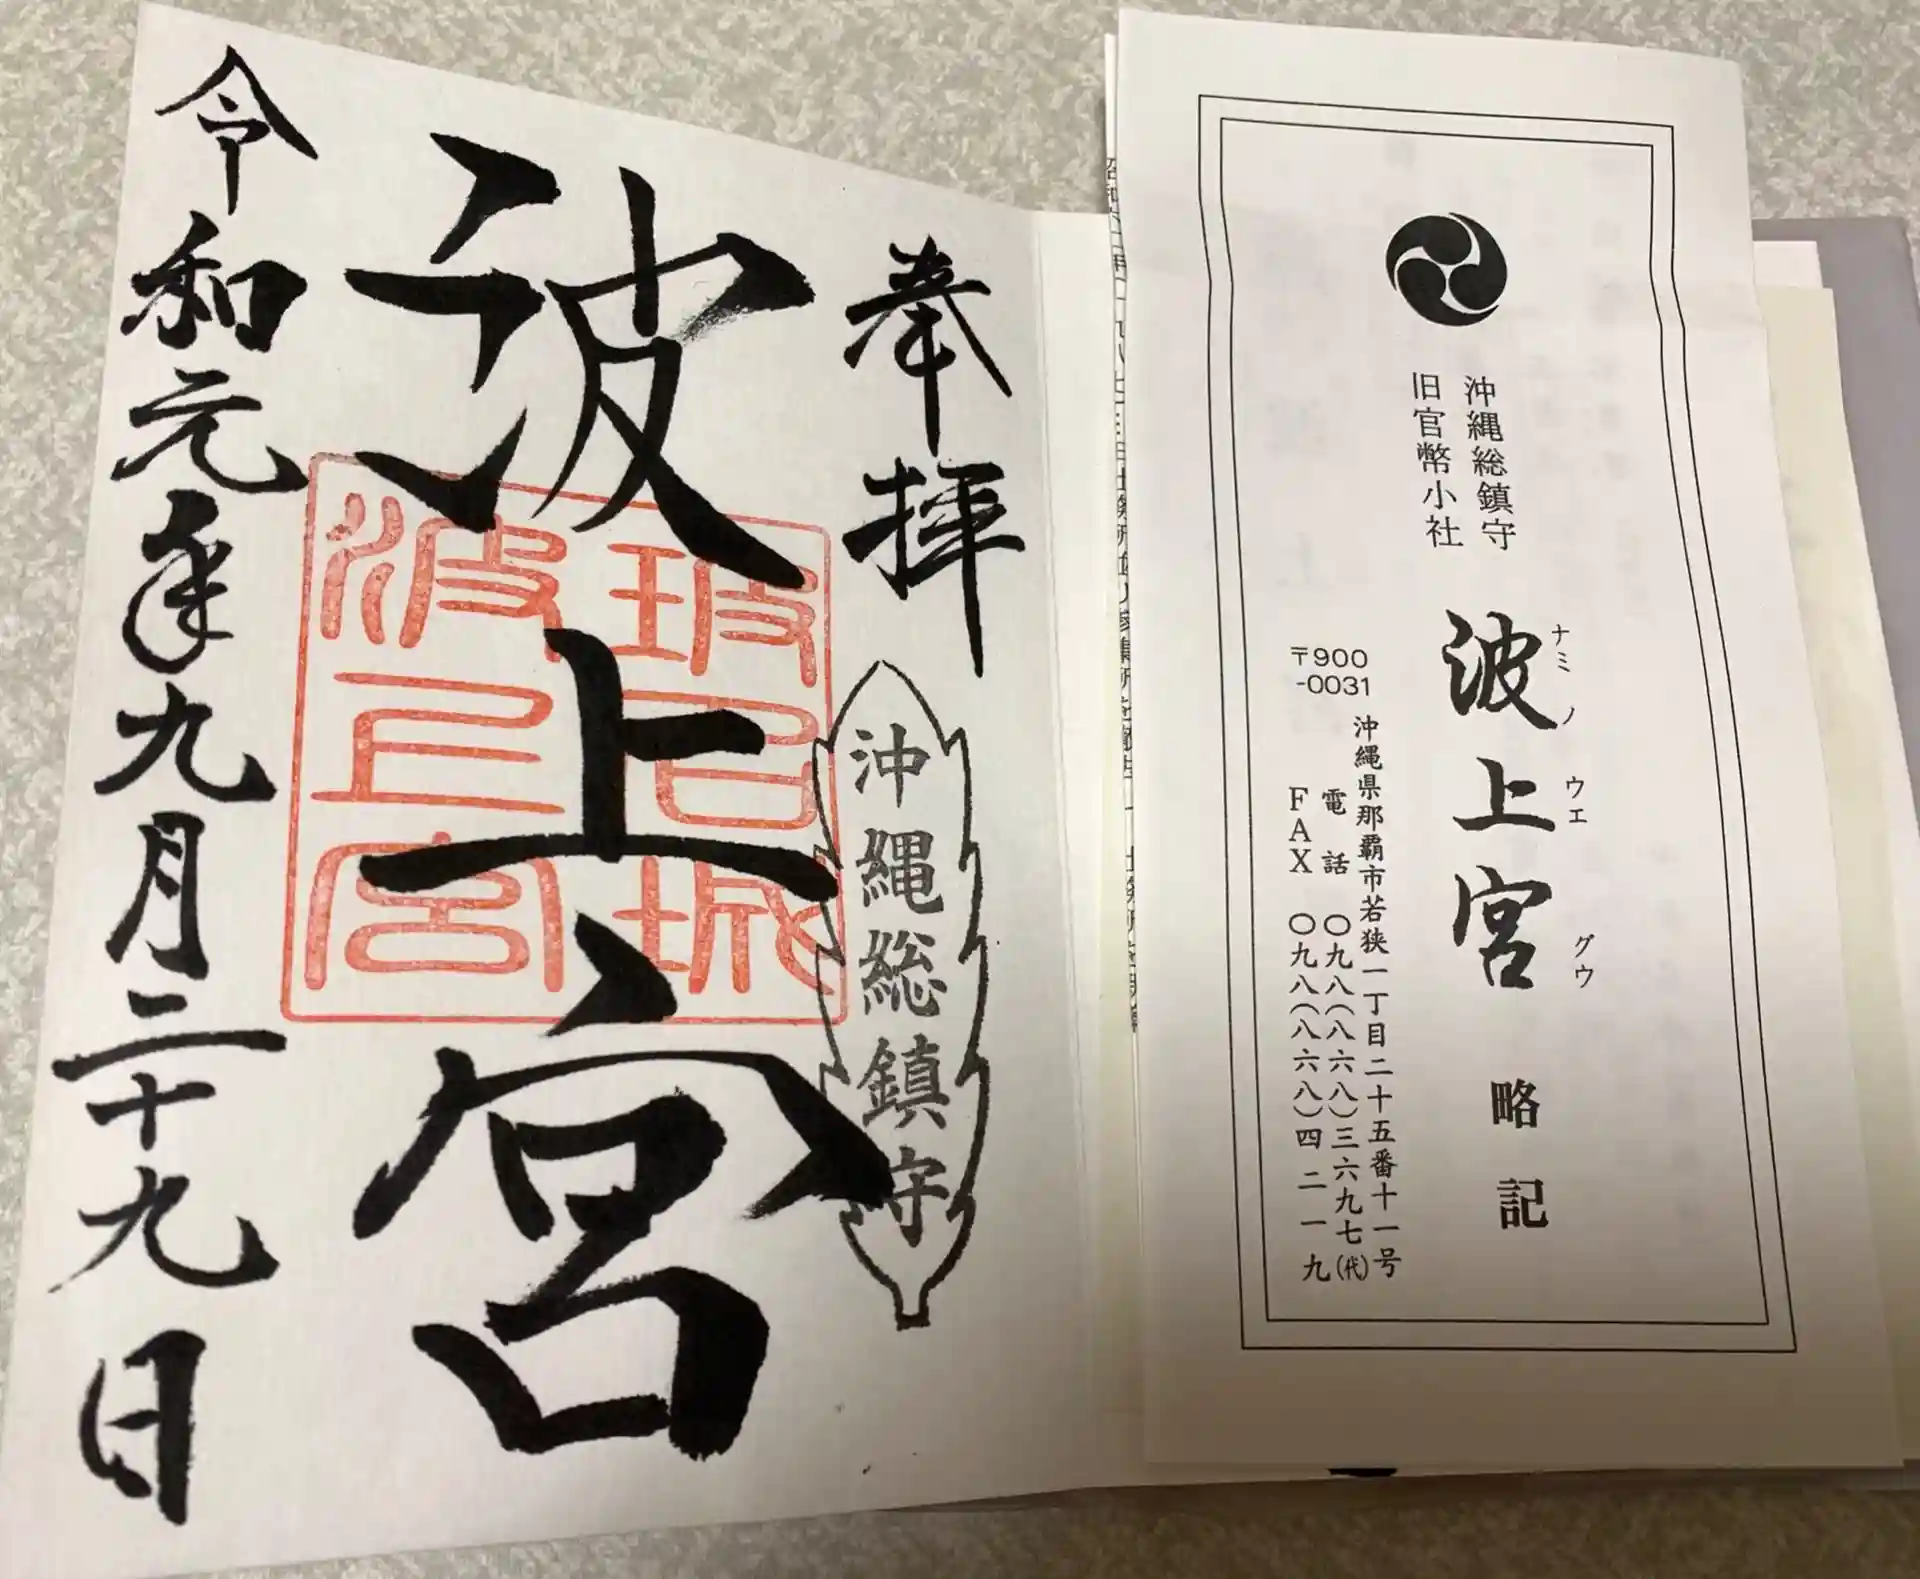 奉拝
沖縄総鎮守
波上宮
令和元年九月二十九日
沖縄総鎮守
旧官幣小社
波上宮 略記
ナミノウエグウ
〒900
-0031
沖縄県那覇市若狭一丁目二十五番十一号
電話 〇九八(八六八)三六九七(代)
FAX 〇九八(八六八)四二一九